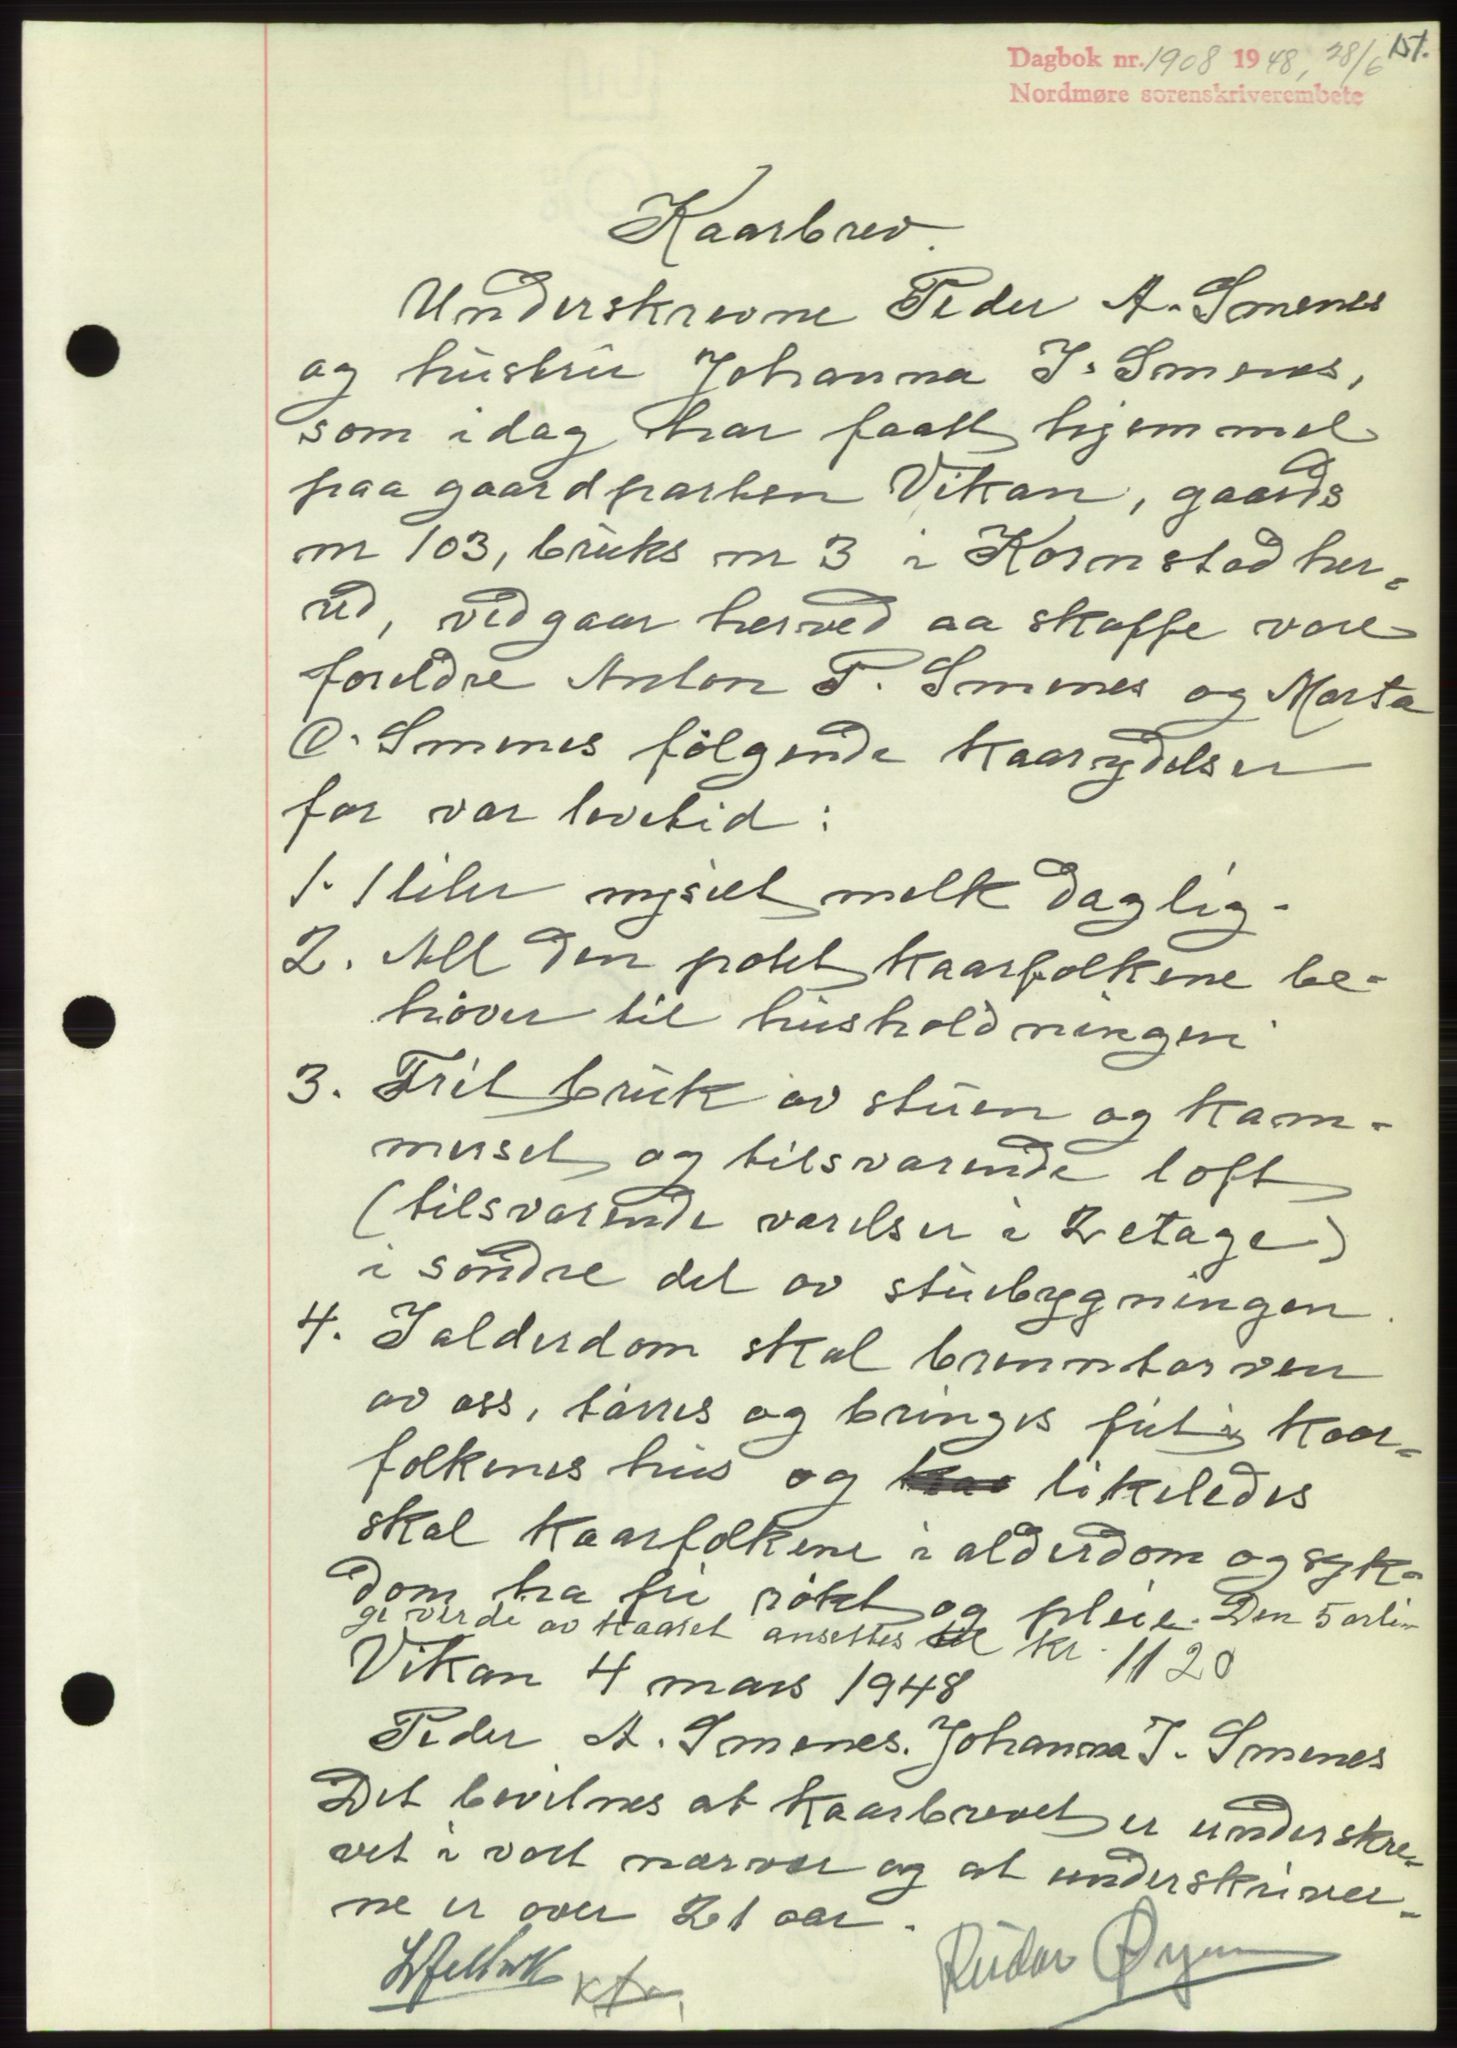 151.
Dagbok nr. 1908 1948, 28/6
Nordmøre sorenskriverembete
Kaarbrev.
Underskrevne Peder A. Smenes
og hustru Johanna J. Smenes,
som idag har faatt hjemmel
paa gaardparten Vikan, gaards
nr 103, bruks nr 3 i Kornstad her-
ed, vedgaar herved aa skaffe vore
foreldre Anton P. Smenes og Marta
O. Smenes følgende kaarydelser
for vor levetid:
1. 1 liter nysilt melk daglig.
2. All den potet kaarfolkene be-
høver til husholdningen
3. Frit bruk av stuen og kam-
merset og tilsvarende loft
(tilsvarende værelser i 2 etage)
i søndre del av stuebygningen.
4. I alderdom skal brenntorven
av oss, tørres og bringes frit i kaar-
folkenes hus og likeledes
skal kaarfolkene i alderdom og syk-
dom ha fri røkt og pleie. Den 5 arli-
ge verde av kaaret ansettes til kr. 1120
Vikan 4 mars 1948
Peder A. Smenes. Johanna J. Smenes
Det bevitnes at kaarbrevet er underskre-
vet i vort nærvær og at underskriver-
ne er over 21 aar.
Reidar Øyen